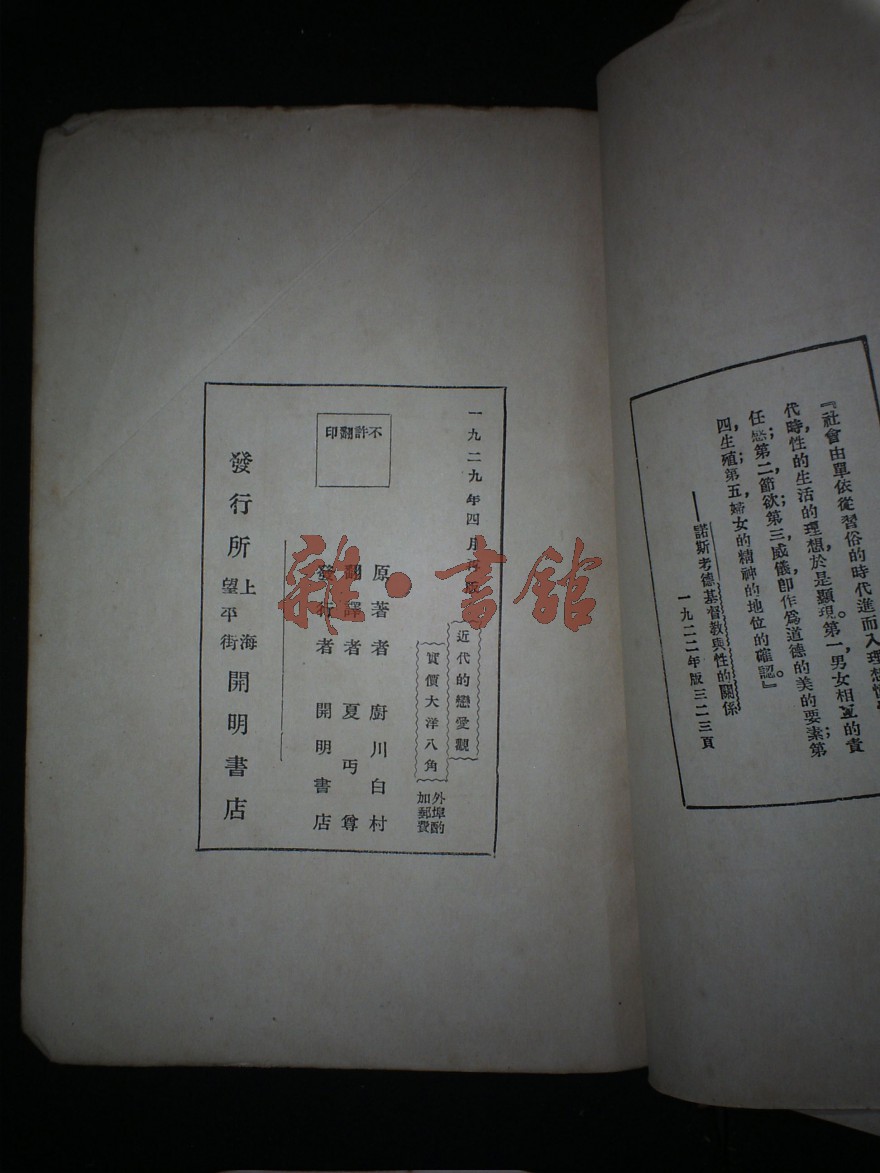 『社會由單依從習俗的時代進而入理想
代時,性的生活的理想,於是顯現。第一,男女相互的責
任戀;第二,節欲;第三,威儀,即作爲道德的美的要素;第
四,生殖;第五,婦女的精神的地位的確認。』
——諾斯考德基督教與性的關係
一九二二年版三二三頁
一九二九年四月再版
近代的戀愛觀
實價大洋八角
外埠酌
加郵費
原著者 廚川白村
翻譯者 夏丏尊
發行者 開明書店
不許翻印
發行所 上海望平街 開明書店
雜·書館